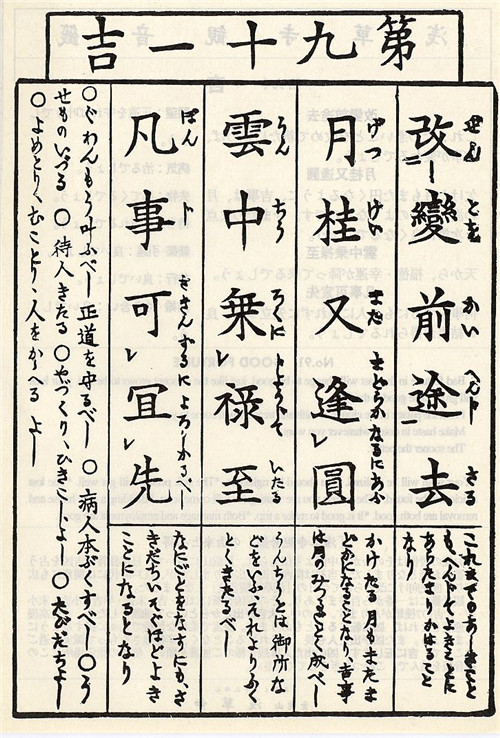 第九十一吉
改變前途去
ぜんとを かいへんしさる
これまでのあしきこと
も、へんじてよきことに
あらたまりかはること
なり
月桂又逢圓
げつけい またまどかなるにあふ
かけたる月もまたま
どかになることなり吉事
は月のみつるごとく成べし
雲中乗禄至
うんちう ろくにじようじていたる
うんちうとは御所な
どをいふそれよりふく
とくきたるべし
凡事可宜先
ぼんじ さきんずるによろしかるべし
なにごとをなすにも、さ
きだちいづるほどよき
ことになるとなり
○ぐわんもう叶ふべし 正道を守るべし ○病人本ぷくすべし ○う
せものいづる ○待人きたる ○やづくり、ひきこしよし ○たびだちよし
○よめとり、むことり、人をかゝへる よし